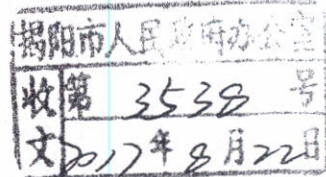 揭阳市人民政府办公室
收第 3538 号
文 2017年8月22日